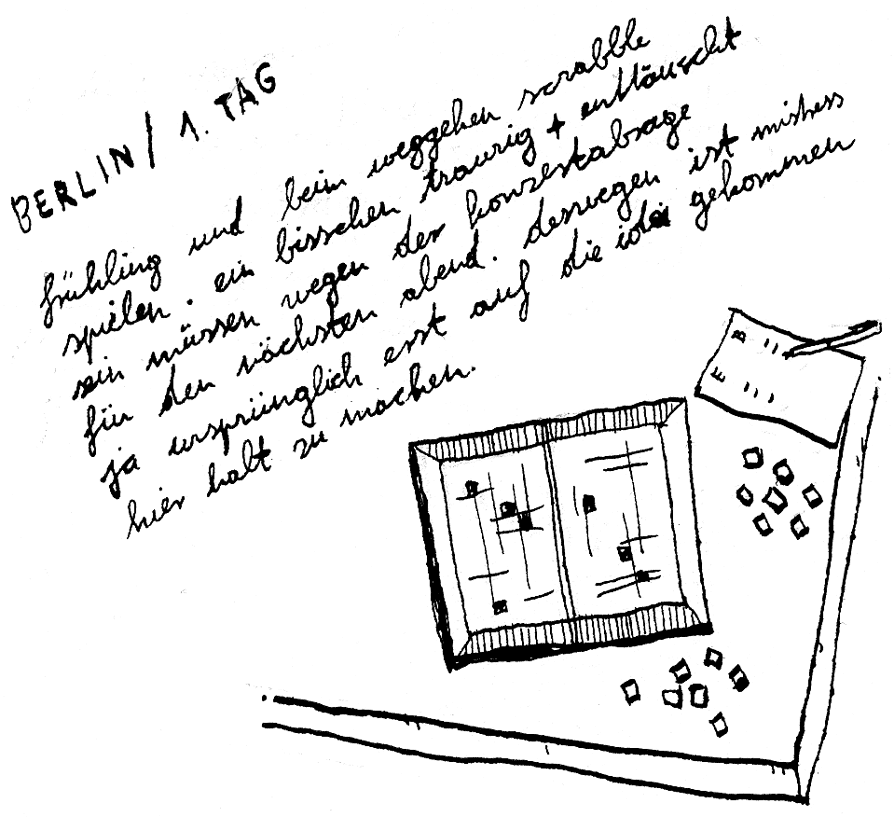 BERLIN / 1. TAG
frühling und beim weggehen scrabble
spielen. ein bisschen traurig + enttäuscht
sein müssen wegen der konzertabsage
für den nächsten abend. deswegen ist mistress
ja ursprünglich erst auf die idee gekommen
hier halt zu machen.
E B